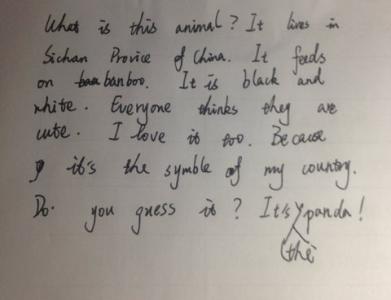 What is this animal? It lives in
Sichan Provice of China. It feeds
on banboo. It is black and
white. Everyone thinks they are
cute. I love it too. Because
it's the symble of my country.
Do you guess it? It's the panda!